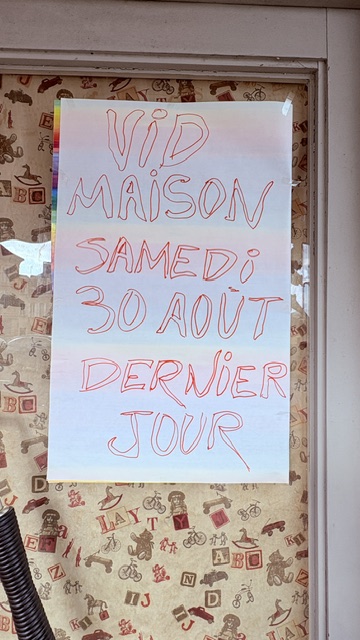 VID
MAISON
SAMEDI
30 AOÛT
DERNIER
JOUR